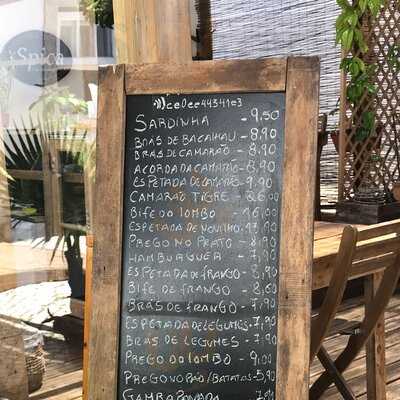 iSpica
SARDINHA - 9,50
BRÁS DE BACALHAU - 8,90
BRÁS DE CAMARÃO - 8,90
AÇORDA DA CAMARÃO - 8,90
ESPETADA DE CAMARÃO - 9,90
CAMARÃO TIGRE - 26,00
BIFE DO LOMBO - 16,00
ESPETADA DE NOVILHO - 13,90
PREGO NO PRATO - 8,90
HAMBURGUER - 7,90
ESPETADA DE FRANGO - 8,90
BIFE DE FRANGO - 8,50
BRÁS DE FRANGO - 7,90
ESPETADA DE LEGUMES - 7,90
BRÁS DE LEGUMES - 7,90
PREGO DO LOMBO - 9,00
PREGO NO PÃO/BATATAS - 5,90
GAMBA PANADA